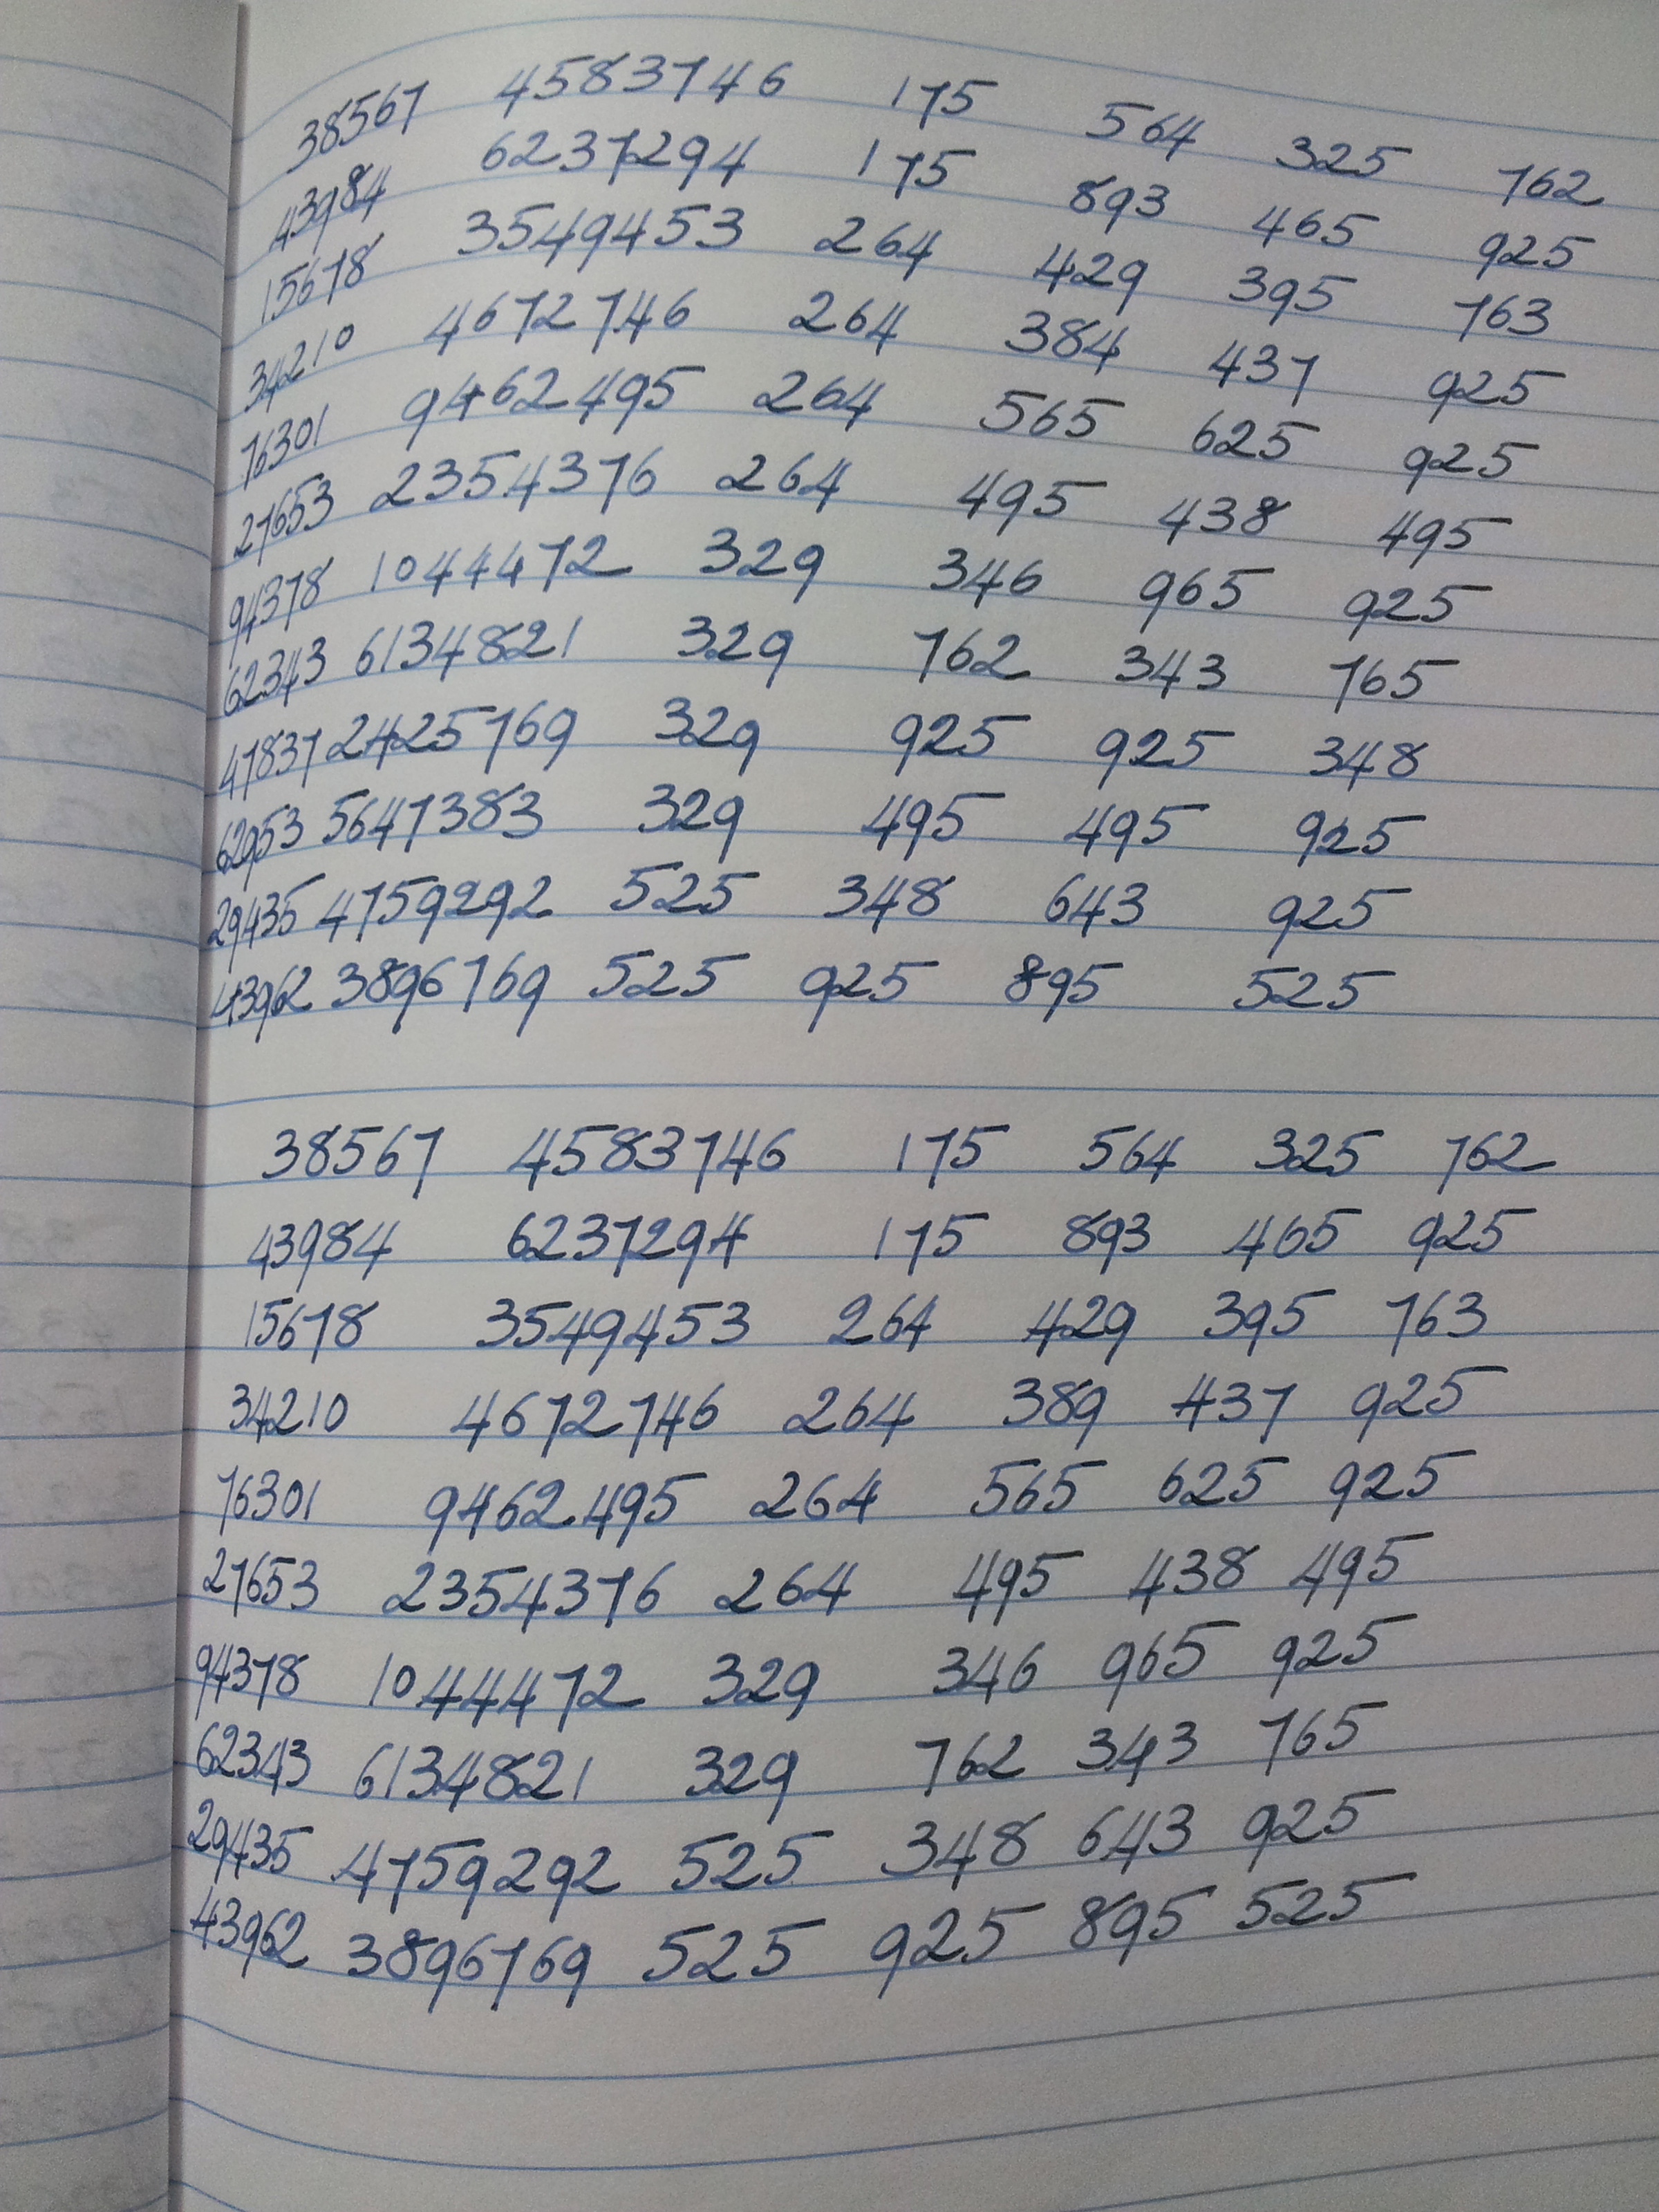 38567 4583746 175 564 325 762
43984 6237294 175 893 465 925
15678 3549453 264 429 395 763
34210 4672746 264 384 437 925
76301 9462495 264 565 625 925
27653 2354376 264 495 438 495
94378 1044472 329 346 965 925
62343 6134821 329 762 343 765
47837 2425769 329 925 925 348
62953 5647383 329 495 495 925
29435 4759292 525 348 643 925
43962 3896769 525 925 895 525
38567 4583746 175 564 325 762
43984 6237294 175 893 465 925
15678 3549453 264 429 395 763
34210 4672746 264 389 437 925
76301 9462495 264 565 625 925
27653 2354376 264 495 438 495
94378 1044472 329 346 965 925
62343 6134821 329 762 343 765
29435 4759292 525 348 643 925
43962 3896769 525 925 895 525